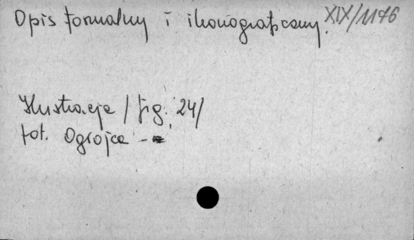 Opis formalny i ikonograficzny. XIX/1176
Ilustracja / fig. 24/
fot. Ogrójca -